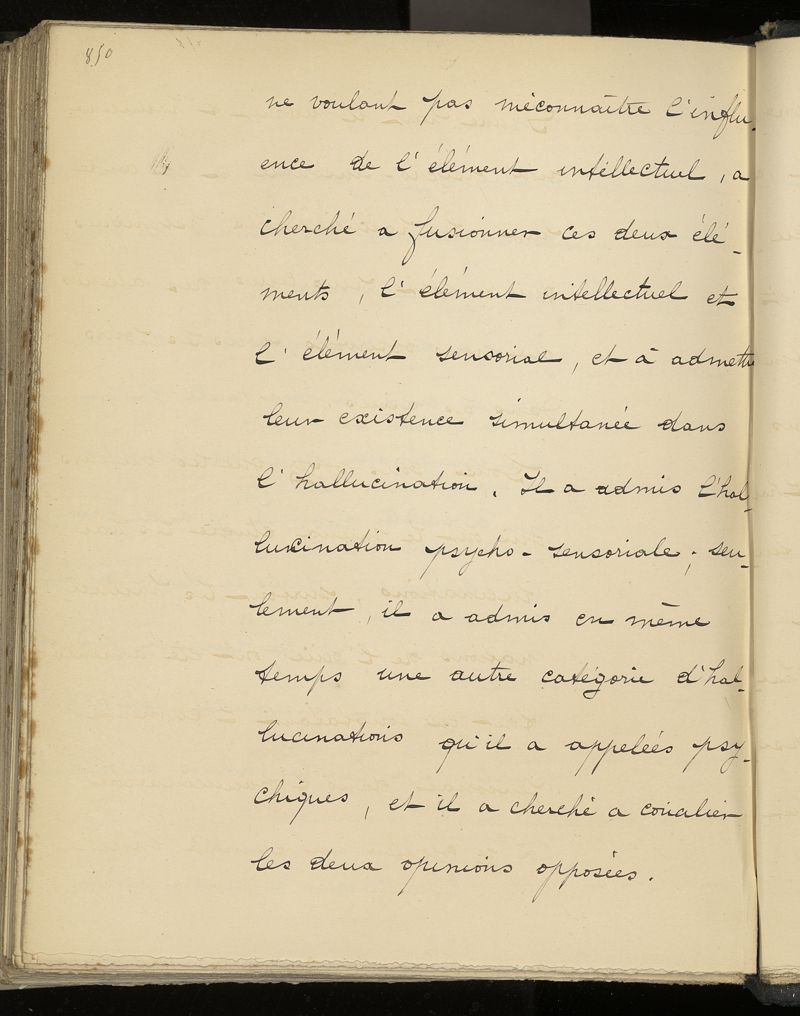 850
ne voulant pas méconnaître l'influ-
ence de l'élément intellectuel, a
cherché a fusionner ces deux élé-
ments, l'élément intellectuel et
l'élément sensorial, et à admettre
leur existence simultanée dans
l'hallucination. Il a admis l'hal-
lucination psycho-sensoriale; seu-
lement, il a admis en même
temps une autre catégorie d'hal-
lucinations qu'il a appelées psy-
chiques, et il a cherché a concilier
les deux opinions opposées.